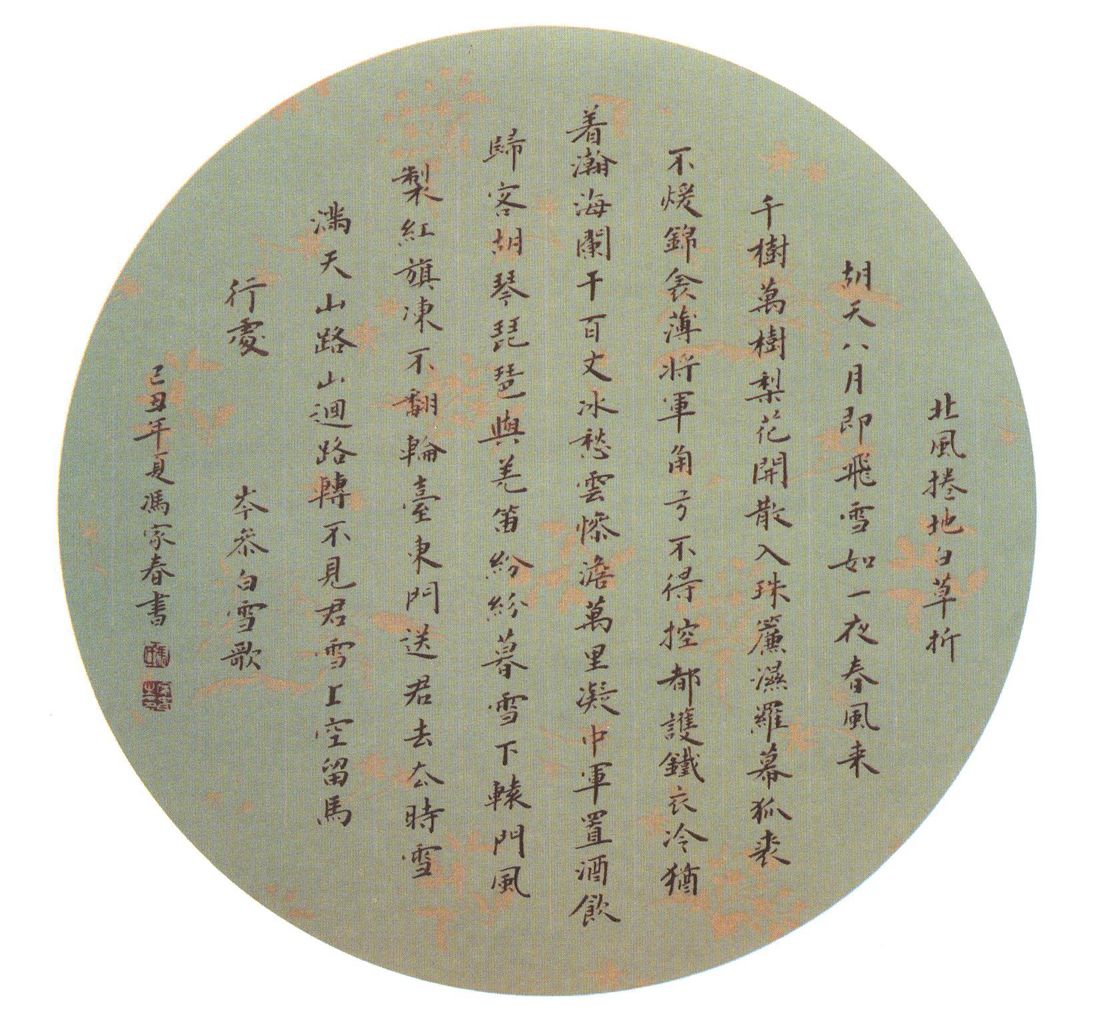 北風捲地白草折
胡天八月即飛雪如一夜春風来
千樹萬樹梨花開散入珠簾濕羅幕狐裘
不煖錦衾薄将軍角弓不得控都護鐵衣冷猶
着瀚海闌干百丈冰愁雲慘澹萬里凝中軍置酒飲
歸客胡琴琵琶與羌笛紛紛暮雪下轅門風
製紅旗凍不翻輪臺東門送君去去時雪
滿天山路山迴路轉不見君雪上空留馬
行處 岑參白雪歌
己丑年夏馮家春書